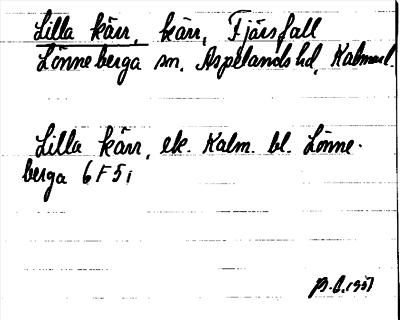 Lilla kärr, kärr, Fjärsfall
Lönneberga sn, Aspelands hd, Kalmarl.
Lilla kärr, ek. Kalm. bl. Lönne-
berga 6 F 5 i